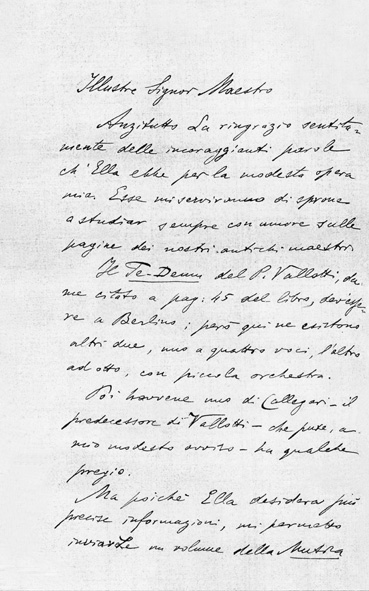 Illustre Signor Maestro
Anzitutto La ringrazio sentita-
mente delle incoraggianti parole
ch'Ella ebbe per la modesta opera
mia. Esse mi serviranno di sprone
a studiar sempre con amore sulle
pagine dei nostri antichi maestri.
Il Te-Deum del P. Vallotti, da
me citato a pag: 45 del libro, dev'esse-
re a Berlino; però qui ne esistono
altri due, uno a quattro voci, l'altro
ad otto, con piccola orchestra.
Poi havvene uno di Callegari - il
predecessore di Vallotti - che pure, a
mio modesto avviso - ha qualche
pregio.
Ma poichè Ella desidera più
precise informazioni, mi permetto
inviarLe un volume della Musica